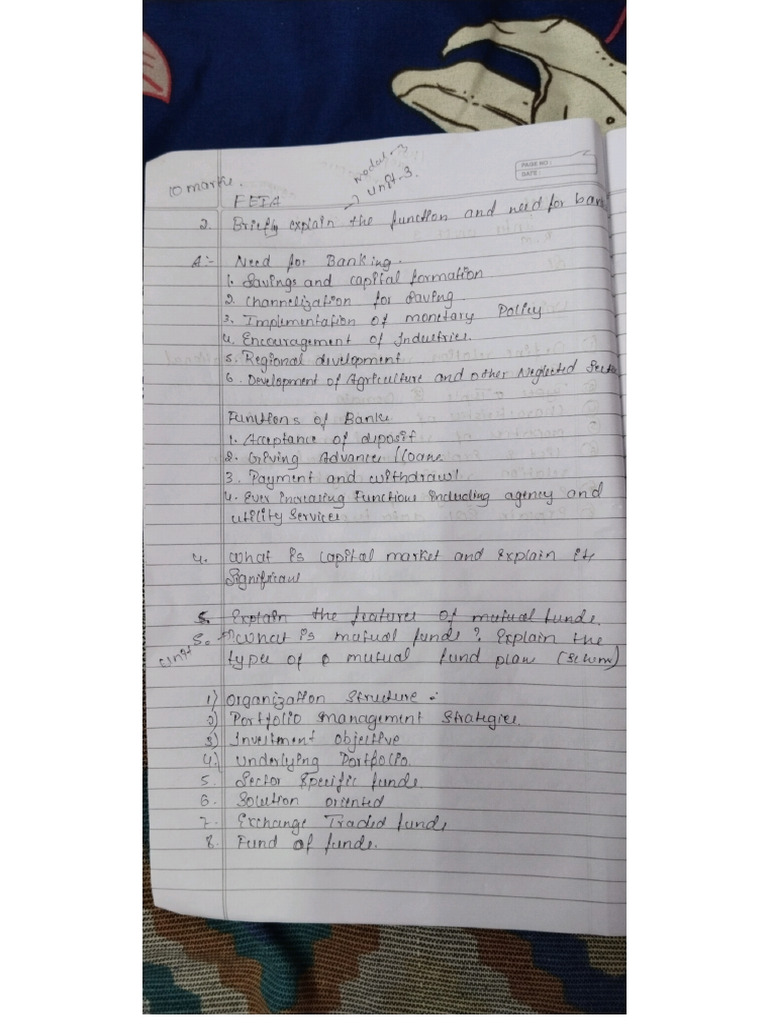 PAGE NO :
DATE :
10 marks.
Modul-3
Unit-3.
FEIA
2. Briefly explain the function and need for bank
A:- Need for Banking.
1. Savings and capital formation
2. Channelization for saving
3. Implementation of monetary Policy
4. Encouragement of Industries.
5. Regional development
6. Development of Agriculture and other Neglected Sector
Functions of Banks
1. Acceptance of deposit
2. Giving Advance /loans
3. Payment and withdrawl
4. Ever increasing Functions including agency and
utility Services
4. What is capital market and explain its
Significans
5. Explain the features of mutual funds.
Unit 5. What is mutual funds? Explain the
types of mutual fund plan (Schem)
1) Organization Structure :
2) Portfolio Management Strategies.
3) Investment Objective
4.) Underlying Portfolio.
5. Sector Specific funds.
6. Solution oriented
7. Exchange Traded funds
8. Fund of funds.